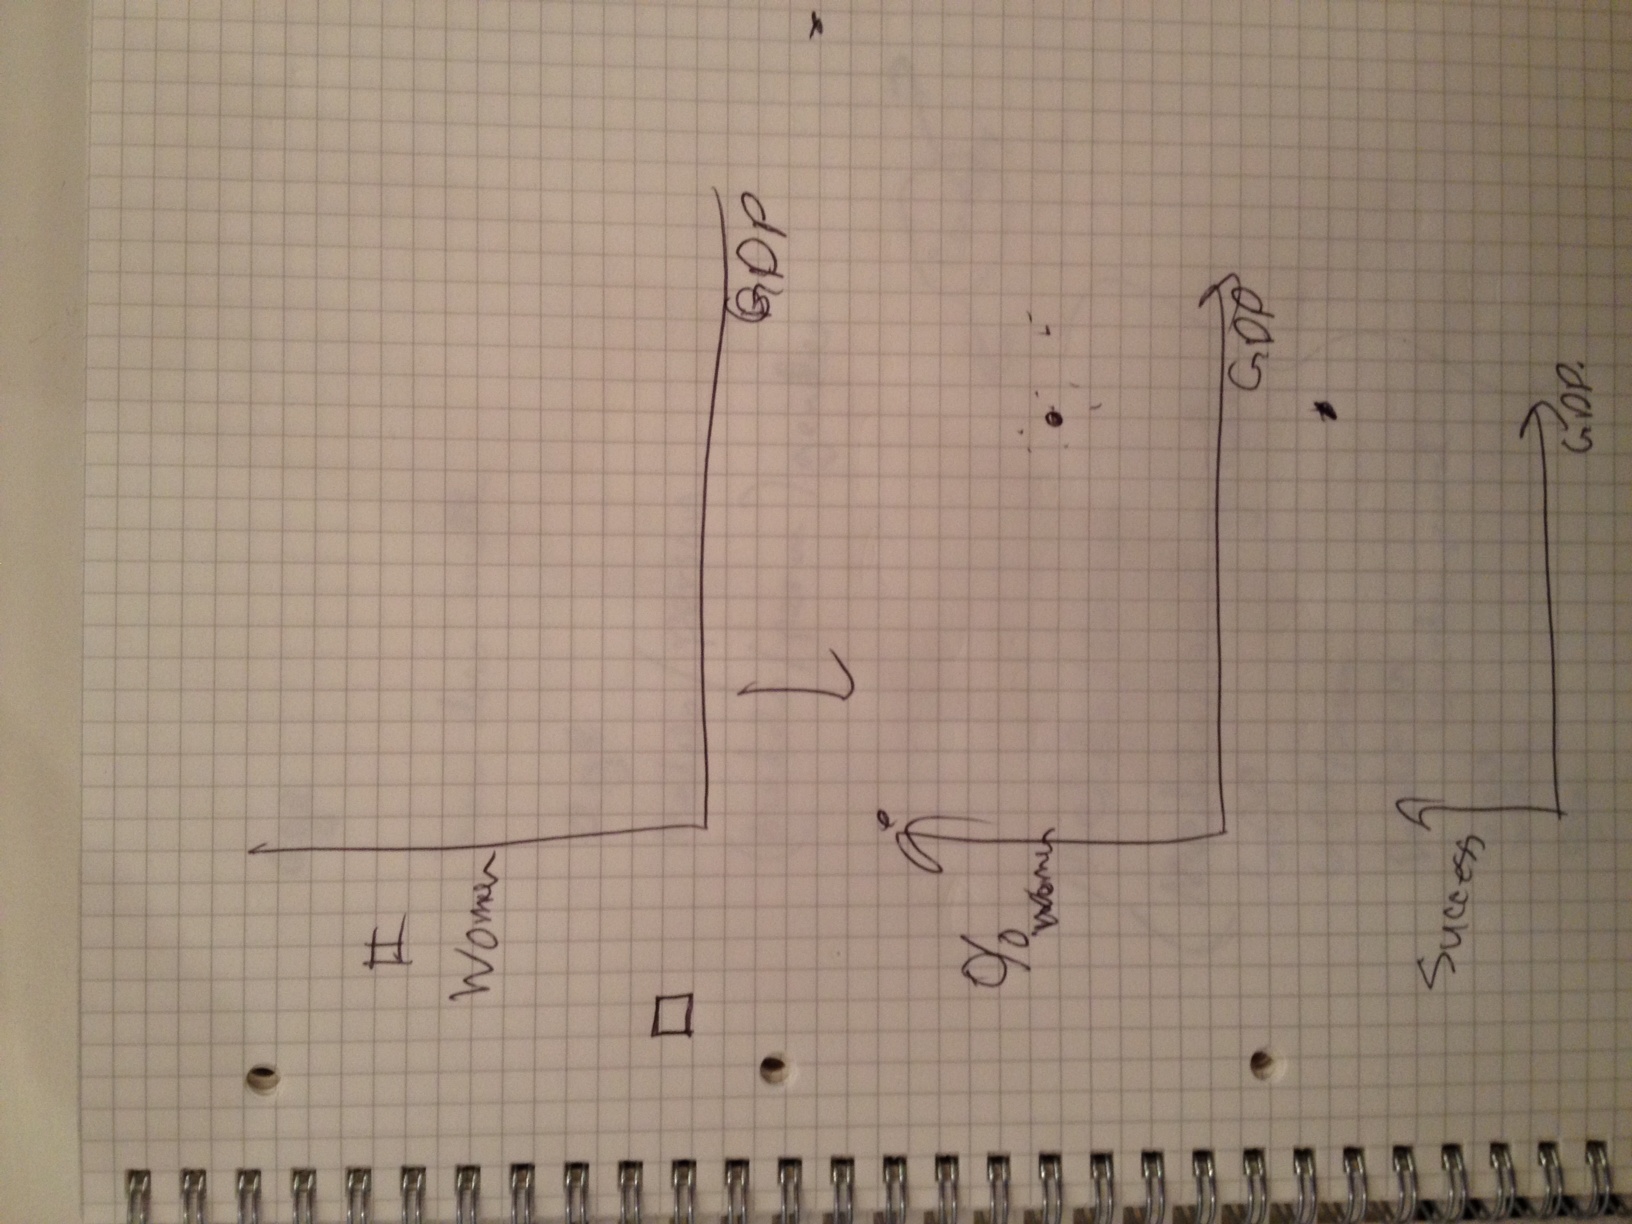 #
Women
GDP
%
women
GDP
Success
GDP.